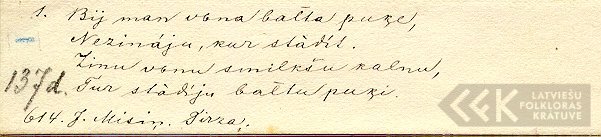 1. Bij man vôna balta puķe,
Nezināju, kur stādīt.
Zinu vônu smilkšu kalnu,
137d. Tur stādiju baltu puķi.
614. J. Misiņ. Tirza.
LATVIEŠU
FOLKLORAS
KRĀTUVE